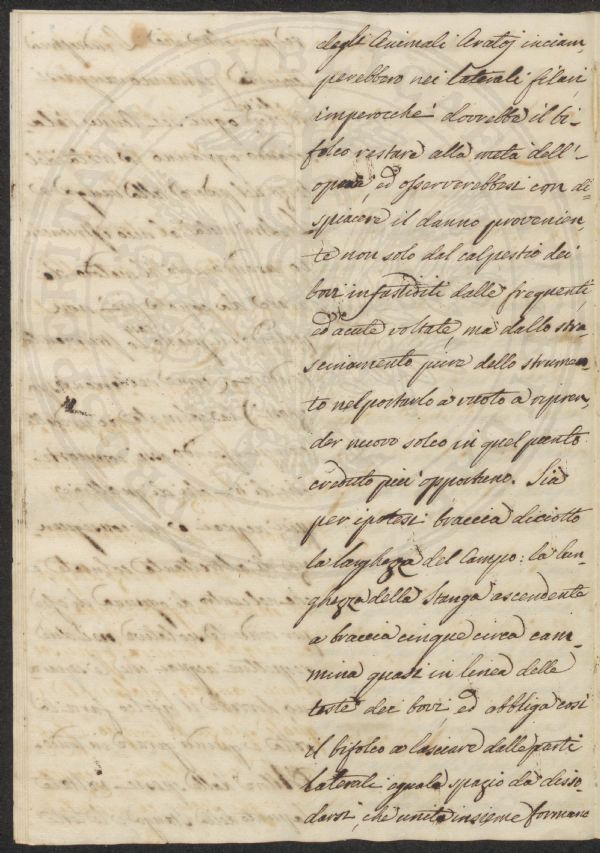 degli Animali Aratoj inciam-
perebbero nei laterali filari,
imperocchè dovrebbe il bi-
folco restare alla metà dell'
opera, ed osserverebbesi con di-
spiacere il danno provenien-
te non solo dal calpestio dei
bovi infastiditi dalle frequenti,
ed acute voltate, ma dallo stra-
scinamento pure dello strumen-
to nel portarlo a vuoto a ripren-
der nuovo solco in quel punto
creduto più opportuno. Sia
per ipotesi braccia diciotto
la larghezza del Campo: la lun-
ghezza della Stanga ascendente
a braccia cinque circa cam-
mina quasi in linea delle
teste dei bovi, ed obbliga così
il bifolco a lasciare dalle parti
laterali eguale spazio da disso-
darsi, che unite insieme formano